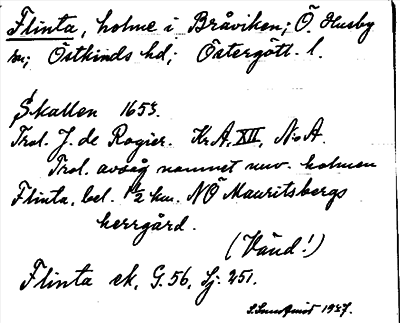 Flinta, holme i Bråviken; Ö. Husby
sn; Östkinds hd; Östergötl. l.
Skallen 1653.
Trol. J. de Rogier. Kr.A, XII, N:o A.
Trol. avsåg namnet nuv. holmen
Flinta, bel. 1½ km. NÖ Mauritsbergs
herrgård.
(Vänd!)
Flinta ek, G. 56, Sj. 251.
1937.